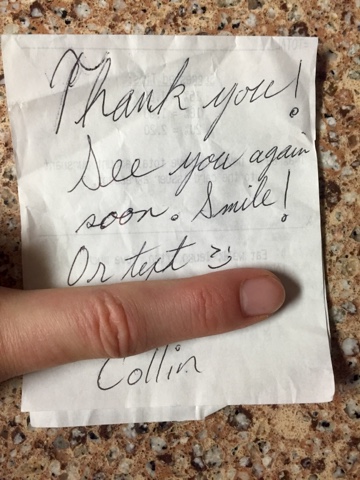 Thank you!
See you again
soon. Smile!
Or text :)
Collin